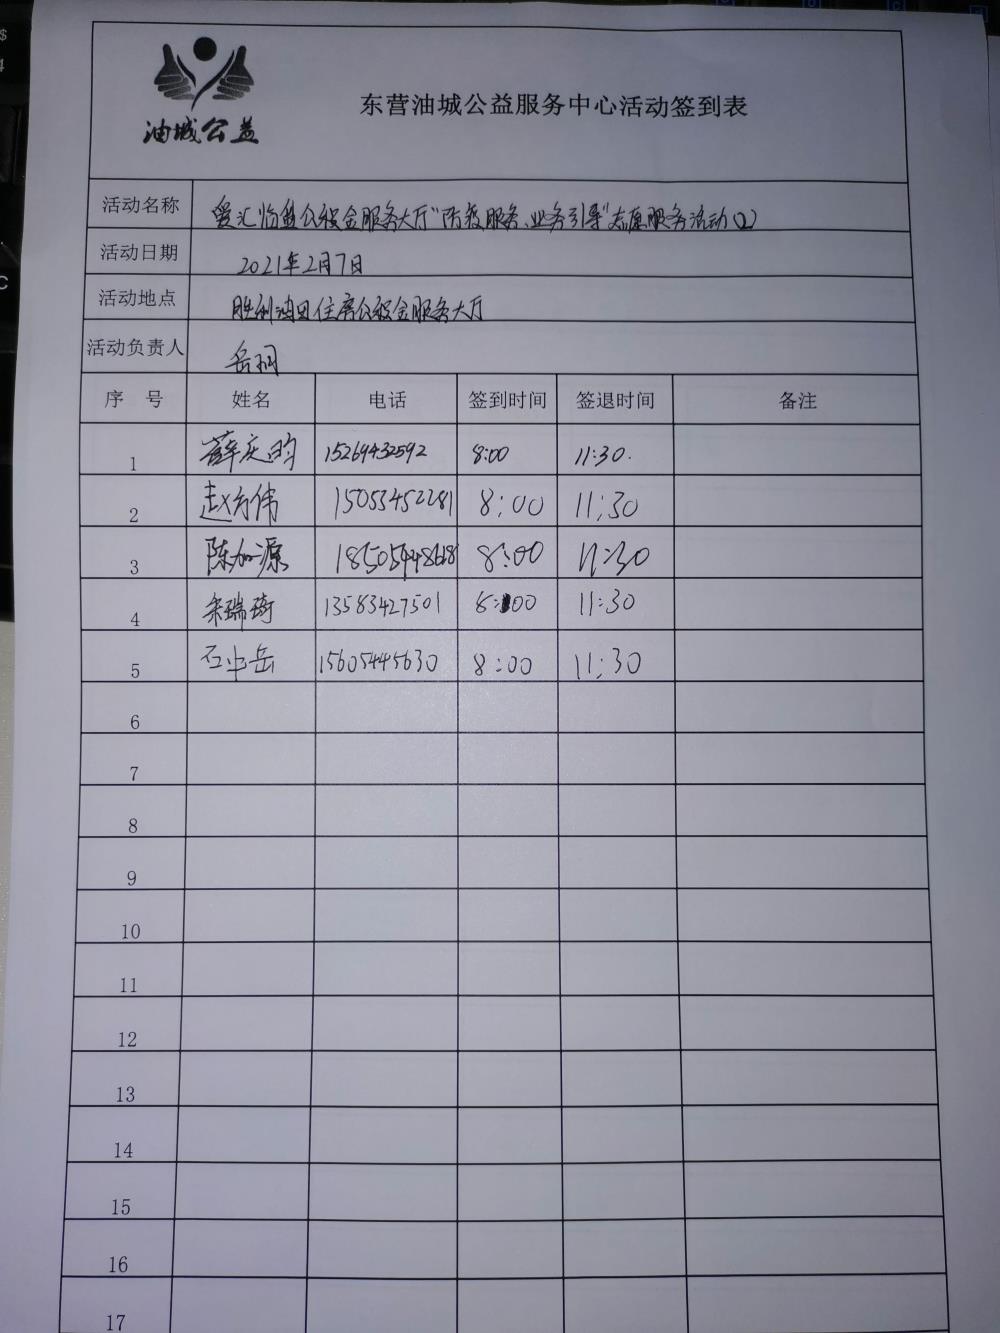 油城公益
东营油城公益服务中心活动签到表
活动名称 爱汇临盘公积金服务大厅"防疫服务、业务引导"志愿服务活动(2)
活动日期 2021年2月7日
活动地点 胜利油田住房公积金服务大厅
活动负责人 岳
序 号 姓名 电话 签到时间 签退时间 备注
1 薛庆昀 15269432592 8:00 11:30.
2 赵方伟 15053452281 8:00 11:30
3 陈加源 18505448618 8:00 11:30
4 瑞琦 13583427501 8:00 11:30
5 石中岳 15605445630 8:00 11:30
6
7
8
9
10
11
12
13
14
15
16
17